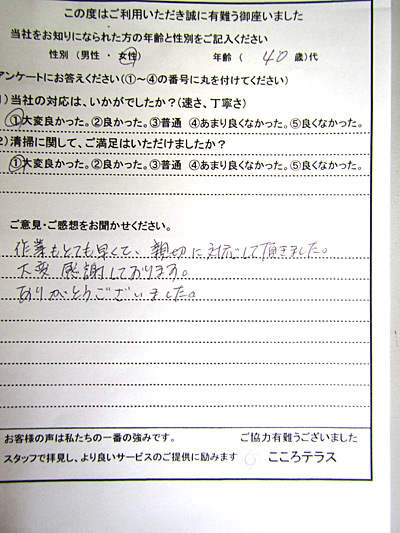 この度はご利用いただき誠に有難う御座いました
当社をお知りになられた方の年齢と性別をご記入ください
性別 (男性 ・ 女性) 年齢 ( 40 歳)代
アンケートにお答えください(①～④の番号に丸を付けてください)
1)当社の対応は、いかがでしたか?(速さ、丁寧さ)
①大変良かった。②良かった。③普通 ④あまり良くなかった。⑤良くなかった。
2)清掃に関して、ご満足はいただけましたか?
①大変良かった。②良かった。③普通 ④あまり良くなかった。⑤良くなかった。
ご意見・ご感想をお聞かせください。
作業もとても早くて、親切に対応して頂きました。
大変感謝しております。
ありがとうございました。
お客様の声は私たちの一番の強みです。 ご協力有難うございました
スタッフで拝見し、より良いサービスのご提供に励みます こころテラス